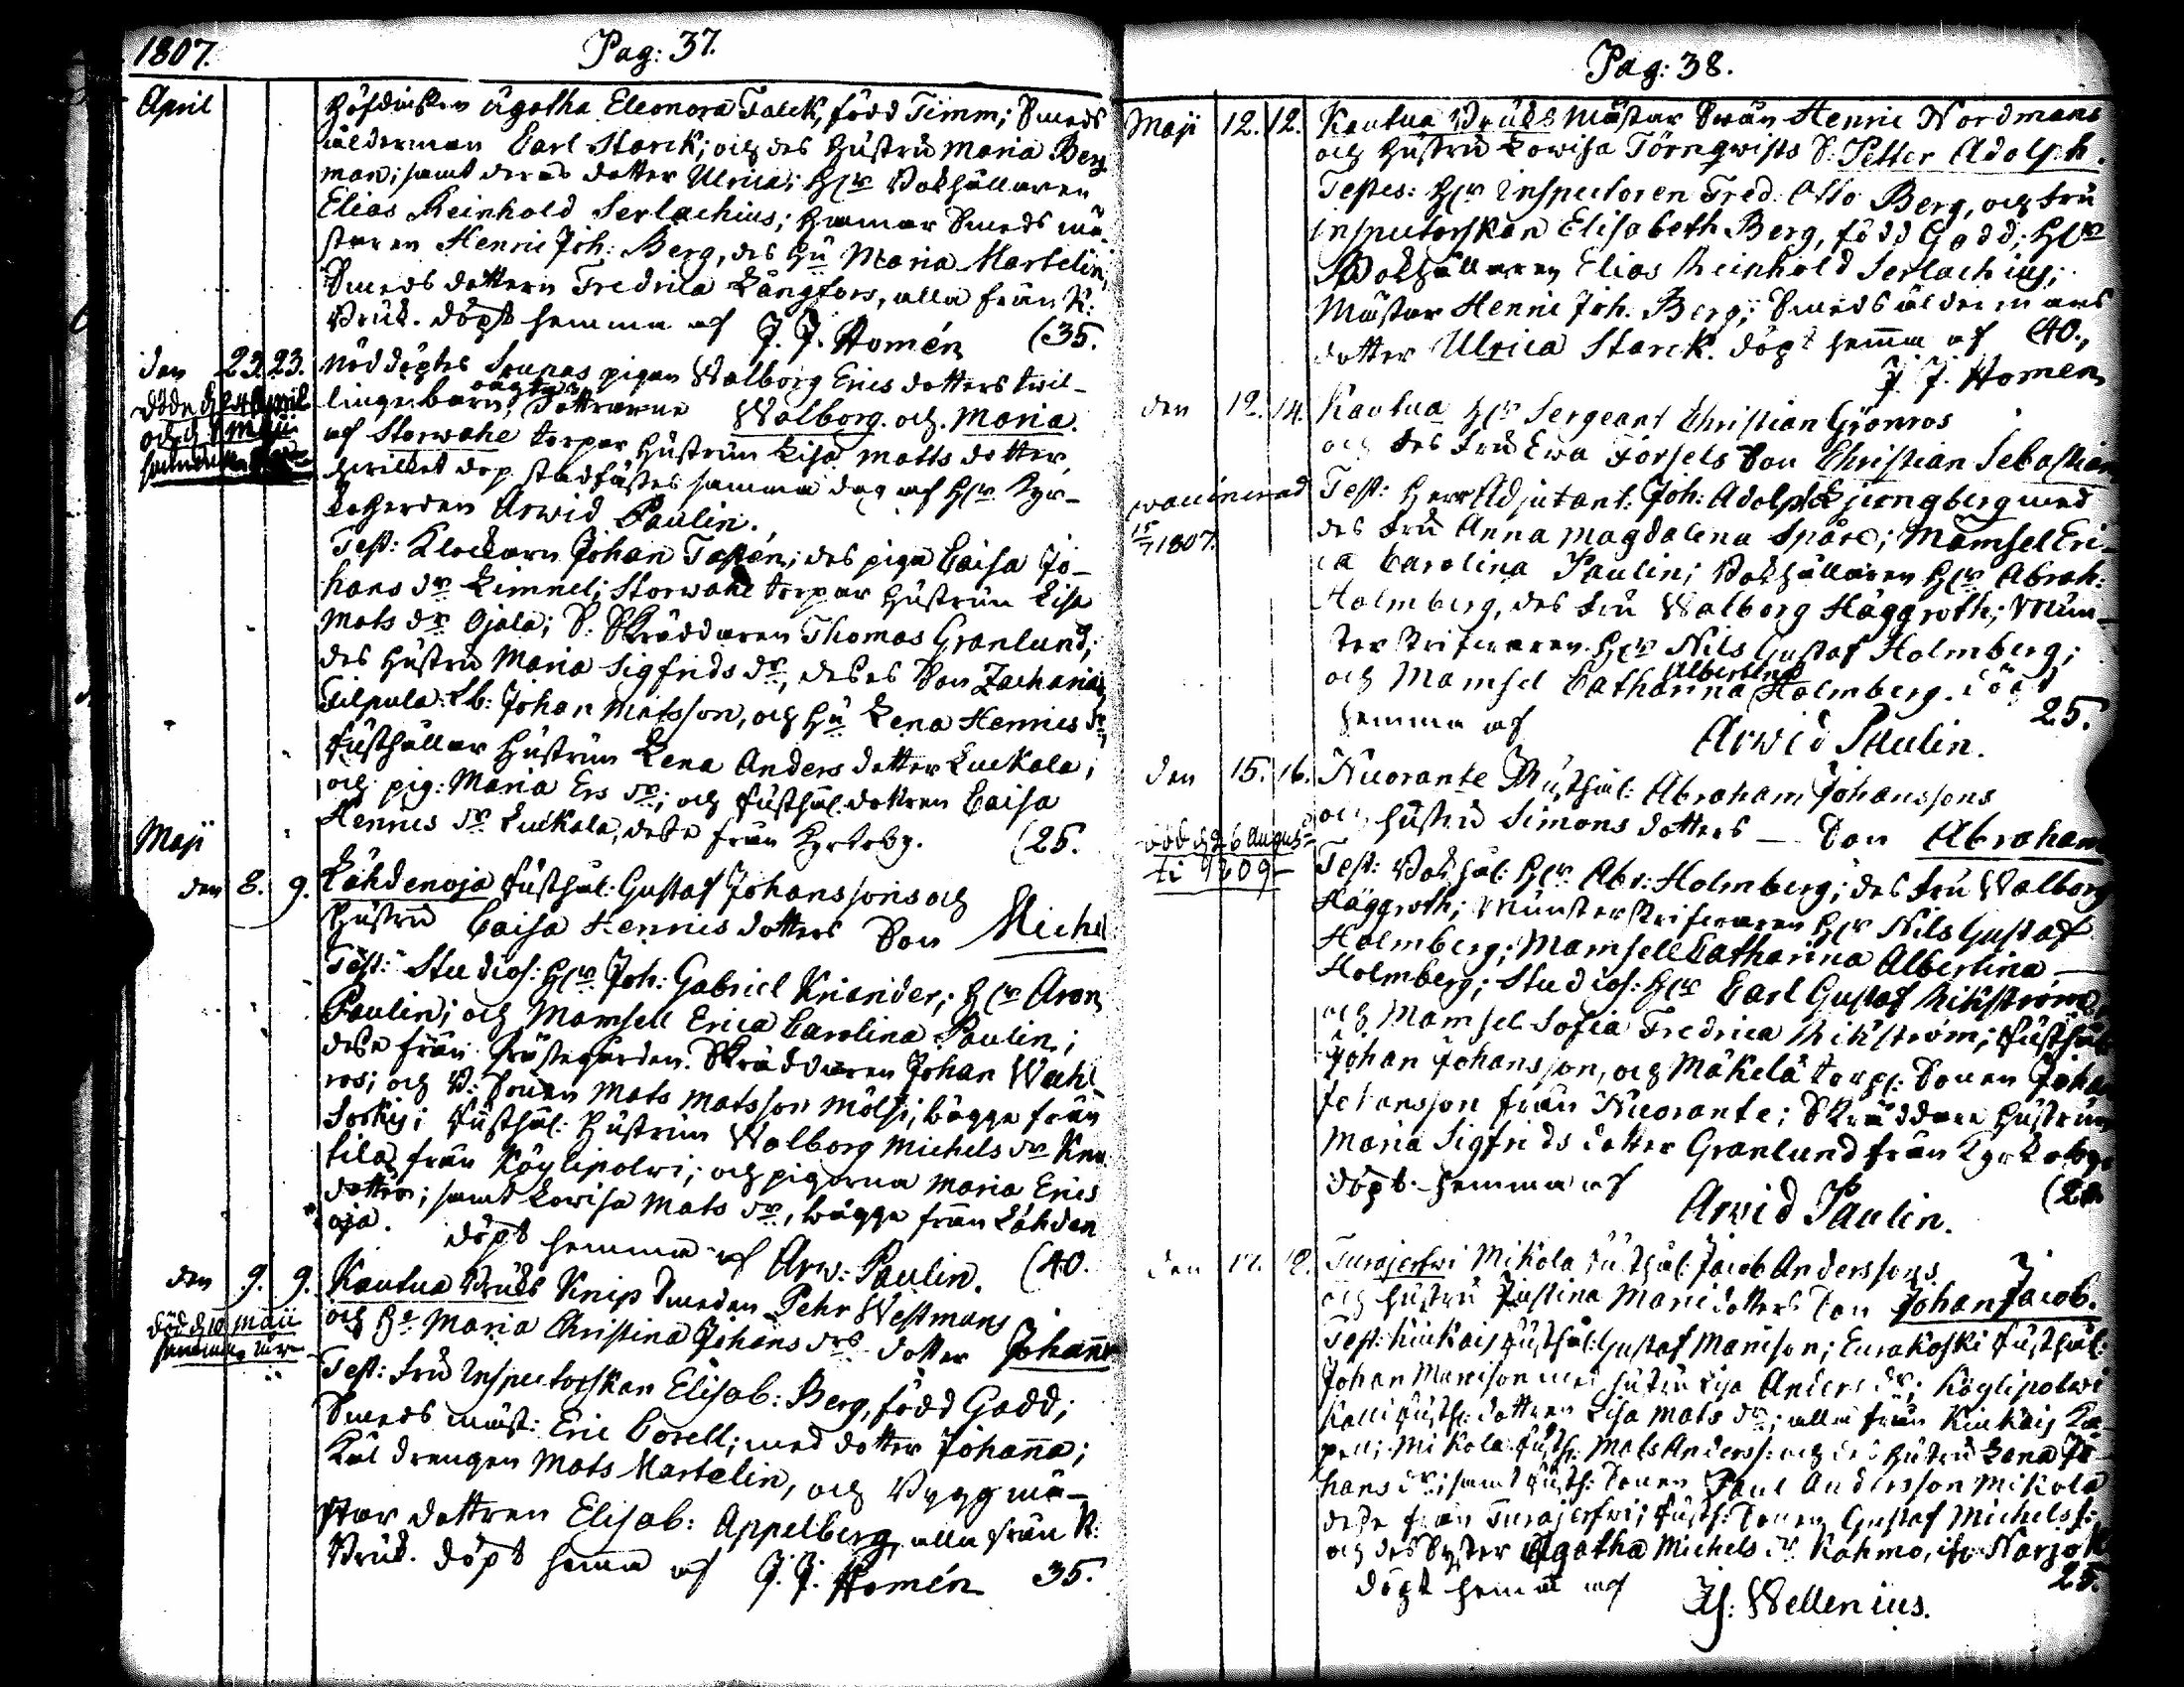 1807.
Pag: 37.
April
Höfdinskan Agatha Eleonora Falck, född Timm; Smeds
ålderman Carl Starck; och des Hustru Maria Berg
man; samt deras dotter Ulrica; H:r Bokhållaren
Elias Reinhold Serlachius; Hammar Smeds mä-
staren Henric Joh: Berg, des Hu Maria Martelin,
Smeds dottern Fredrica Långfors, alla från K:
Bruk. döpt hemma af J. J. Homén (35.
den 23. 23. Nöddöptes pigan Walborg Erics dotters twil-
linge barn, oägta
dottrarne Walborg och Maria.
döde d 24 April
och d 1 Maji
af Storwahe torpar Hustrun Lisa Matts dotter,
hwilket dop stadfästes samma dag af H:r Kyr-
koherden Arwid Paulin.
Test: Klockarn Johan Tastén; des piga Caisa Jo-
hans dr Limnel; Storwahe torpar Hustrun Lisa
Mats dr Ojala; S: Skräddaren Thomas Granlund,
des Hustru Maria Sigfrids dr, deses Son Zacharias
Filpula: Lb: Johan Matsson, och Hu Lena Henrics dr,
Rusthållar Hustrun Lena Anders dotter Luckala;
och pig: Maria Ers dr; och Rusthål. dottren Caisa
Henrics dr Luckala, dese från Kyrkoby. (25.
Maji
den 8. 9. Lähdenoja Rusthål: Gustaf Johanssons och
Hustru Caisa Henrics dotters Son Michel
Test: Studios: H:r Joh: Gabriel Kniander; H:r Aron
Paulin; och Mamsell Erica Carolina Paulin;
dese från Prästegården. Skräddaren Johan Wahl
ros; och B: Sonen Mats Matsson Mölsi, bägge från
Sorkis; Rusthål: Hustrun Walborg Michels dr Knu
tila från Köylipolwi; och pigorna Maria Erics
dotter; samt Lowisa Mats dr, bägge från Lähden
oja. döpt hemma af Arw: Paulin. (40.
den 9. 9. Kautua Bruks Knip Smeden Pehr Westmans
och H: Maria Christina Johans drs dotter Johanna
död d 10 Maii
Test: Fru Inspectorskan Elisab: Berg, född Gadd;
Smeds mäst: Eric Corell; med dotter Johanna;
Kål drengen Mats Martelin, och Byggmä-
star dottren Elisab: Appelberg, alla från K:
Bruk. döpt hema af J. J. Homén 35.
Pag: 38.
Maji 12. 12. Kautua Bruks Mästar Swän Henric Nordmans
och Hustru Lowisa Törnqwists S: Petter Adolph.
Testes: H:r Inspectoren Fred: Otto Berg, och Fru
Inspectorskan Elisabeth Berg, född Gadd; H:r
Bokhållaren Elias Reinhold Serlachius;
Mästar Henric Joh. Berg; Smeds äldermans
dotter Ulrica Starck. döpt hema af (40.
J. J. Homén
den 12. 14. Kautua H:r Sergeant Christian Grönros
och des Fru Ewa Forsels Son Christian Sebastian
vaccinerad
15/7 1807.
Test: Herr Adjutant: Joh: Adolph Ljungberg med
des Fru Anna Magdalena Spåre; Mamsel Eri-
ca Carolina Paulin; Bokhållaren H:r Abrah:
Holmberg, des Fru Walborg Häggroth; Mun-
sterskrifwaren H:r Nils Gustaf Holmberg;
och Mamsel Catharina Albertina Holmberg. döpt
hemma af Arwid Paulin. 25.
den 15. 16. Nuorante Rusthål: Abraham Johanssons
och Hustru Simons dotters — Son Abraham
död d 26 Augus-
ti 1809
Test: Bokhål: H:r Abr: Holmberg; des Fru Walborg
Häggroth; Munsterskrifwaren H:r Nils Gustaf
Holmberg; Mamsell Catharina Albertina —
Holmberg; Studios: H:r Carl Gustaf Wikström,
och Mamsel Sofia Fredrica Wikström; Rusthål
Johan Johansson, och Mäkelä torp: Sonen Johan
Johansson från Nuorante; Skräddare Hustrun
Maria Sigfrids dotter Granlund från Kyrkoby
döpt hemma af Arwid Paulin.
den 17. Turajerfwi Mikola Rusthål: Jacob Anderssons
och Hustru Justina Maric dotters Son Johan Jacob.
Test: Kiukais Rusthål: Gustaf Maricson; Eurakoski Rusthål:
Johan Maricson med Hustru Lisa Anders dr; Köylipolwi
Kalli Rusth: dottren Lisa Mats dr; alla från Kiukais Ka-
pell; Mikola Rusth: Mats Anderss: och des Hustru Lena Jo-
hans dr; samt Rusth: Sonen Paul Andersson Mikola
dese från Turajerfwi; Rusth: Sonen Gustaf Michelss:
och des Syster Agatha Michels dr Kahmo, ifr. Narjok
döpt hemma af Is: Wellenius. 25.